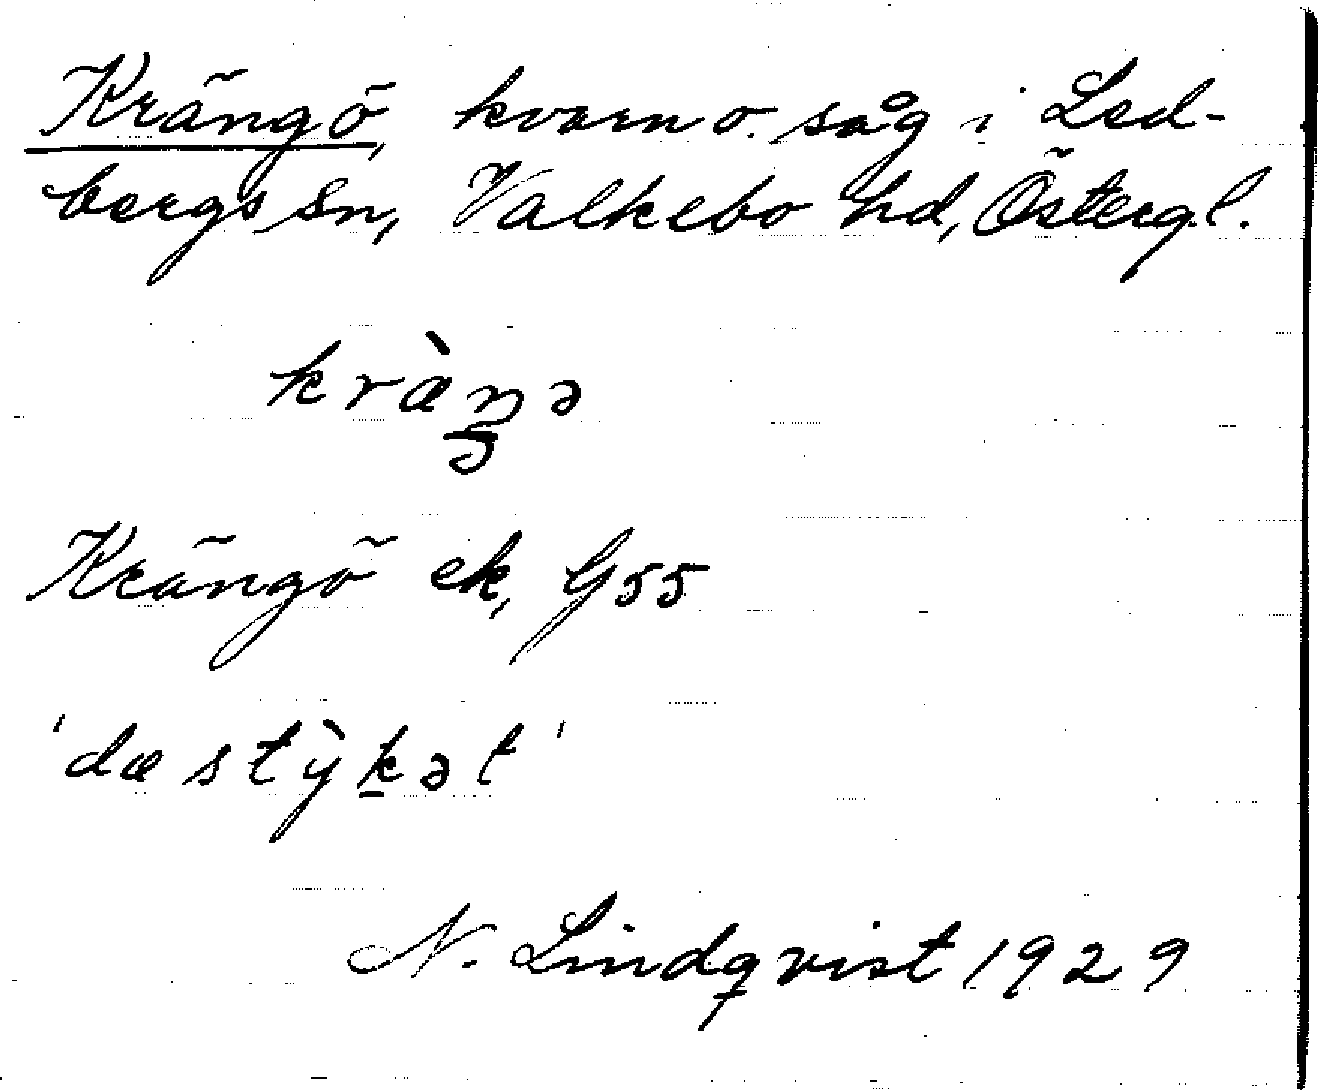 Krängö, kvarn o. såg i Led-
bergs sn, Valkebo hd, Östergl.
kràŋə
Krängö ek, G 55
'dæ stỳkət'
N. Lindqvist 1929